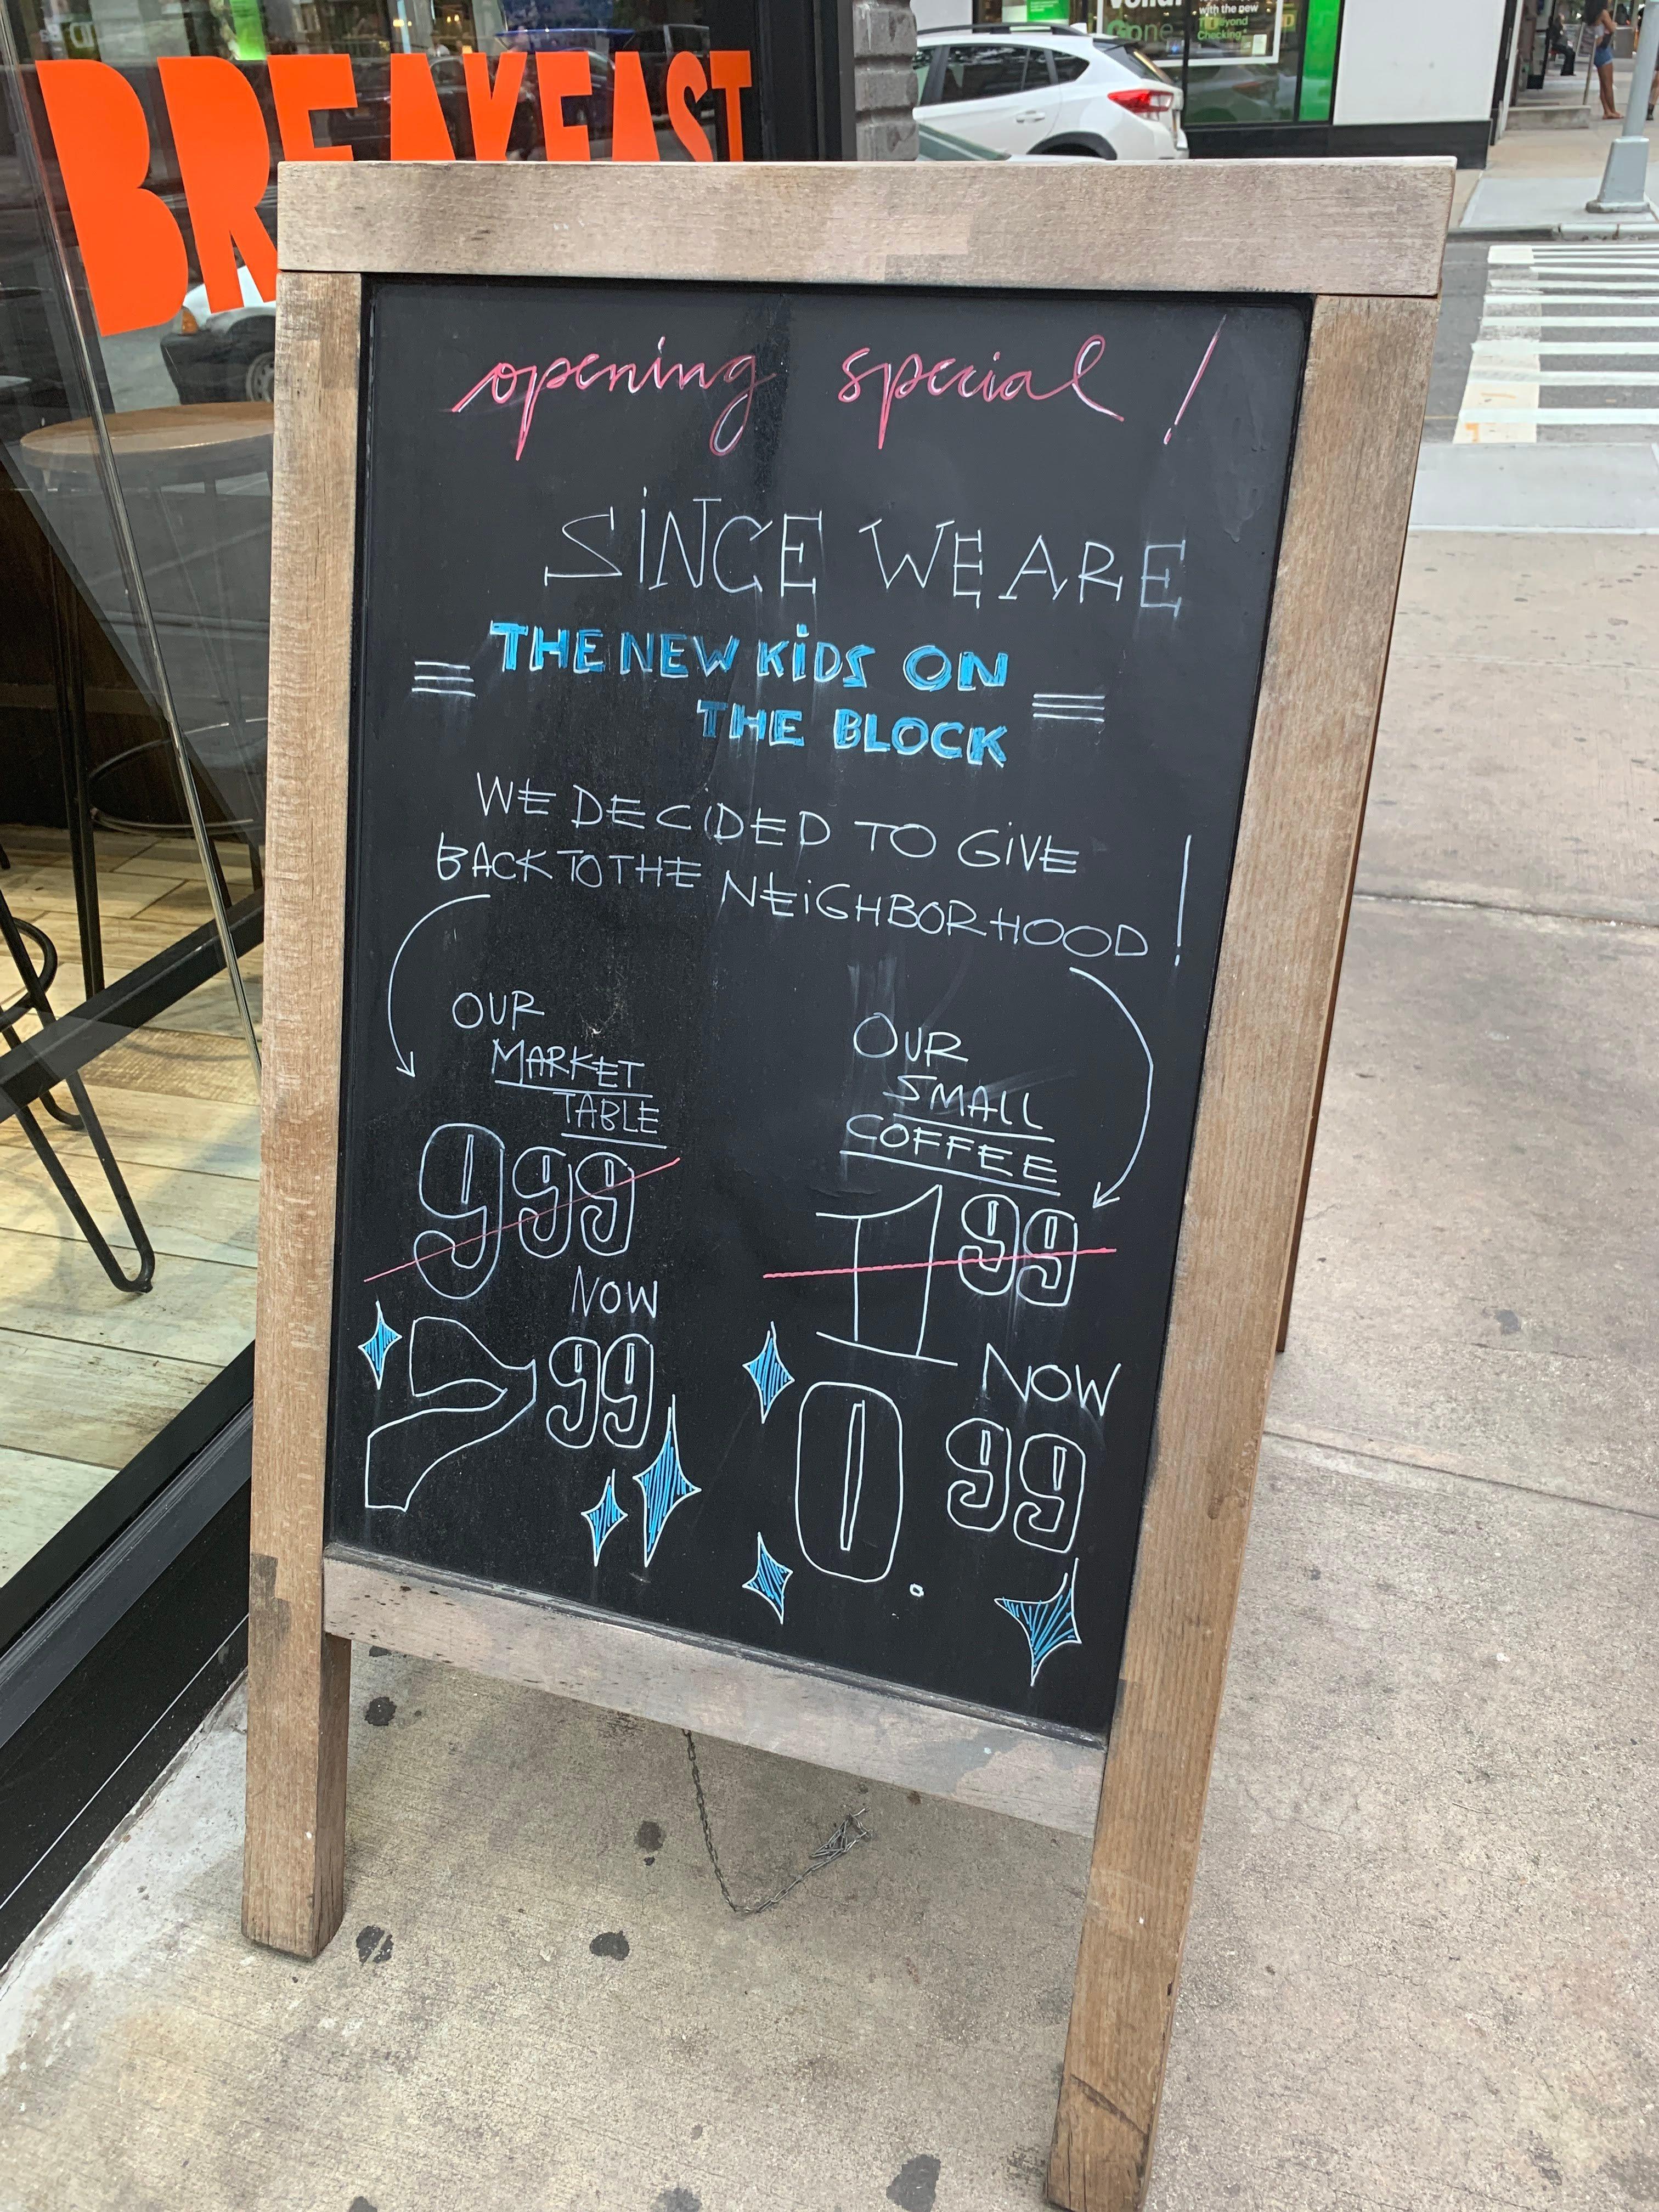 BREAKFAST
Voilà!
One
with the new
TD Beyond
Checking
opening special!
SINCE WE ARE
THE NEW KIDS ON
THE BLOCK
WE DECIDED TO GIVE
BACK TO THE NEIGHBORHOOD!
OUR
MARKET
TABLE
999
NOW
799
OUR
SMALL
COFFEE
199
NOW
0.99